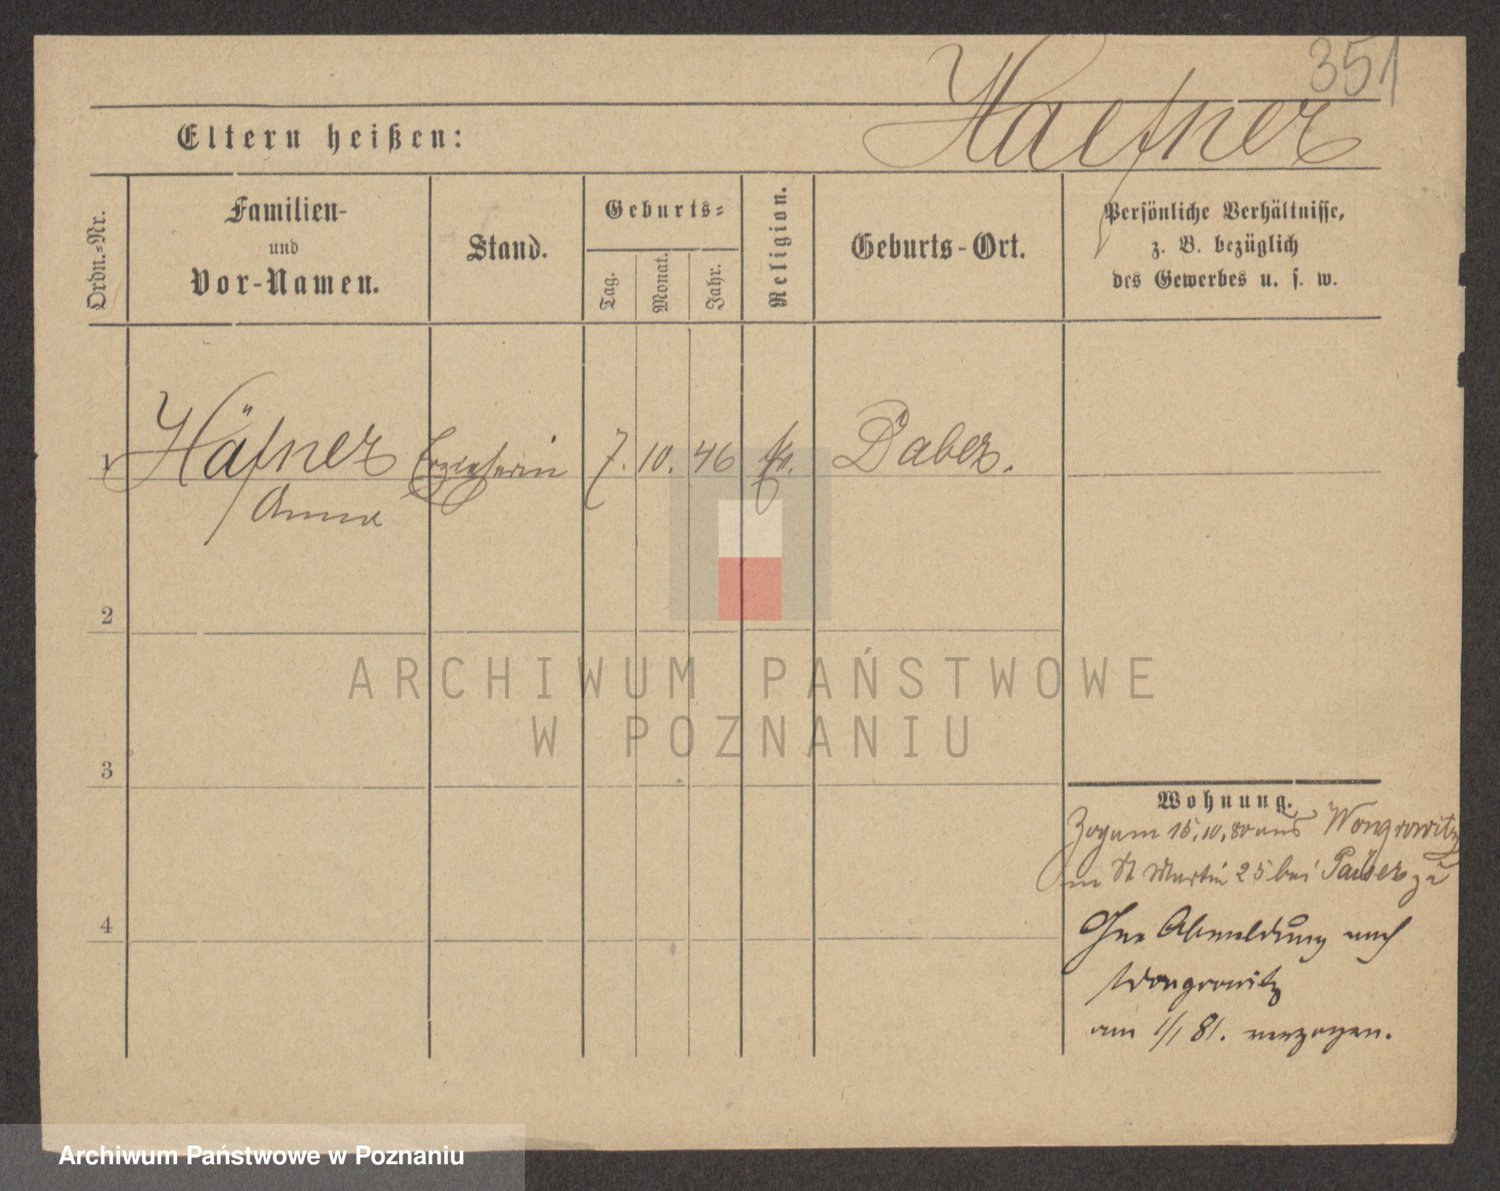 351
Haefner
Eltern heißen:
Ordn.-Nr.
Familien-
und
Vor-Namen.
Stand.
Geburts-
Tag.
Monat.
Jahr.
Religion.
Geburts-Ort.
Persönliche Verhältnisse,
z. B. bezüglich
des Gewerbes u. s. w.
1 Häfner Erzieherin 7. 10. 46 Daber.
Anna
2
3
4
Wohnung.
Zog am 15.10.80 aus Wongrowitz
St Martin 25 bei zu
Ohne Abmeldung nach
Wongrowitz
am 1/1 81. verzogen.
ARCHIWUM PAŃSTWOWE
W POZNANIU
Archiwum Państwowe w Poznaniu